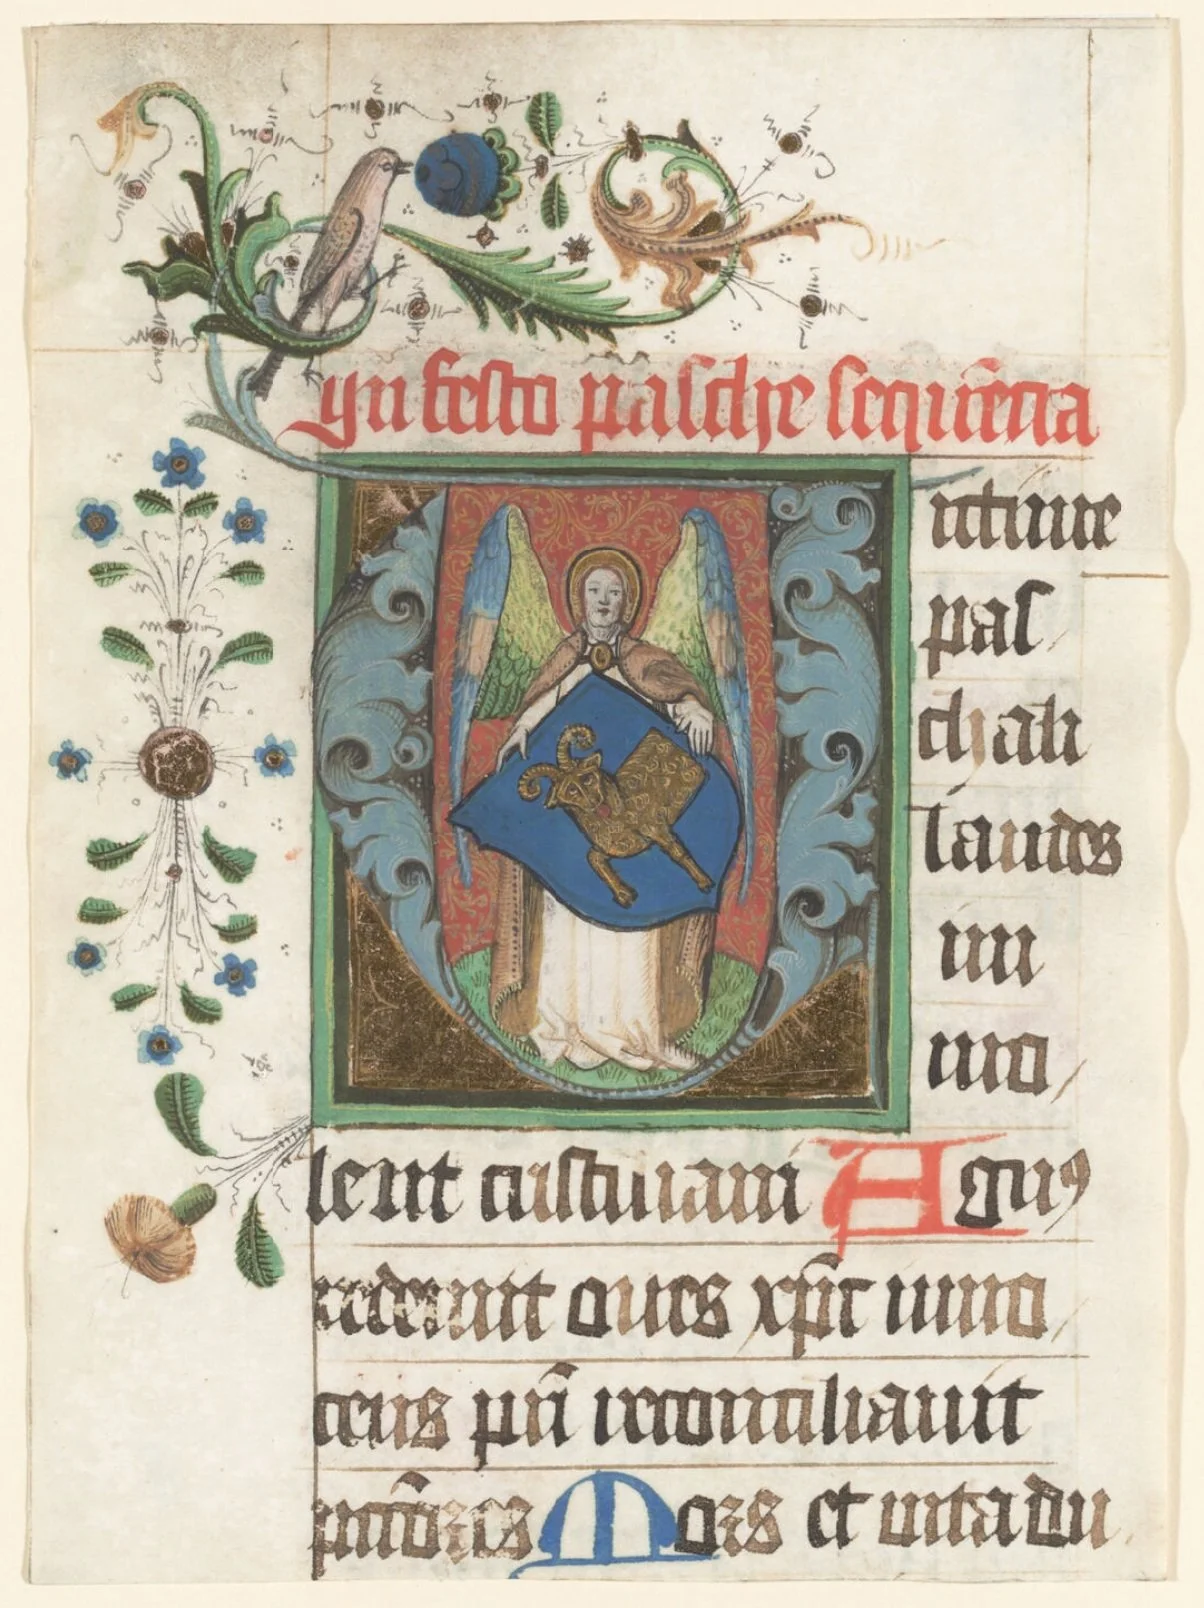 yn festo pasche sequẽcia
Victime
pas
chali
laudes
im
mo
lent cristiani Agnꝰ
redemit oues xp̄c inno
cens pr̄i reconciliauit
pcc̄ores Mors et uita du